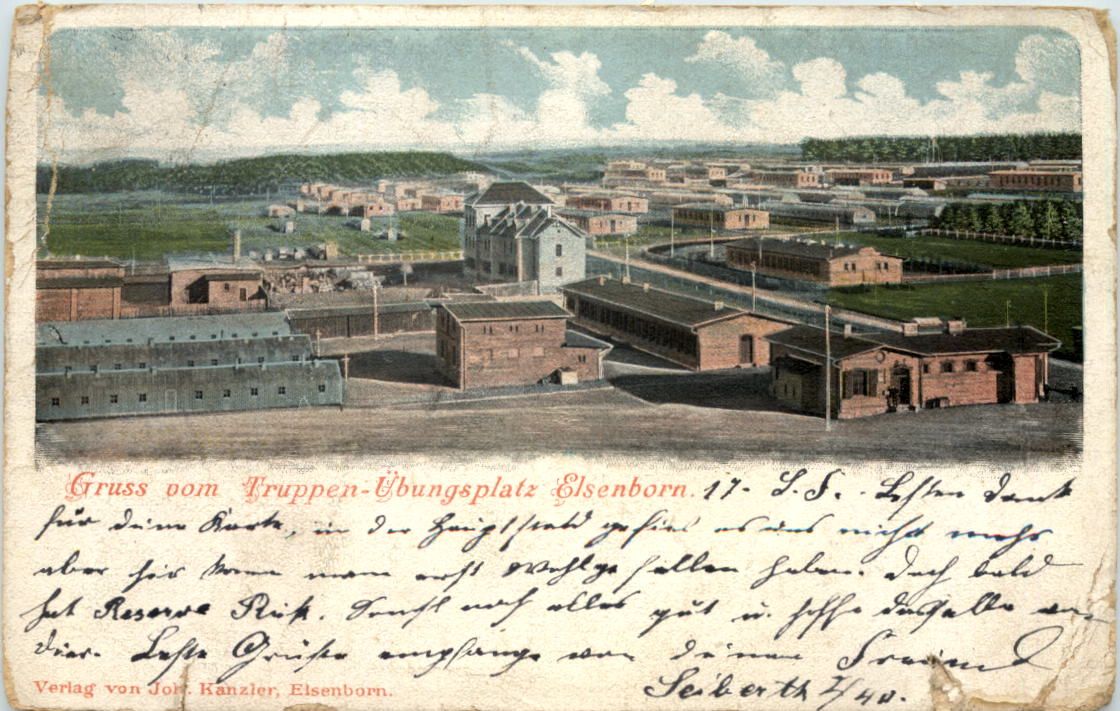 Gruss vom Truppen-Übungsplatz Elsenborn. 17. L. F. Besten Dank
für deine Karte, in der Hauptstadt gefiel es uns nicht mehr
aber hir kann man erst Wohlgefallen haben. Doch bald
hat Reserve Ruh. Sonst noch alles gut u. hoffe dasselbe von
dir. Beste Grüße empfange von deinem Freund
Seiberth
Verlag von Joh. Kanzler, Elsenborn.